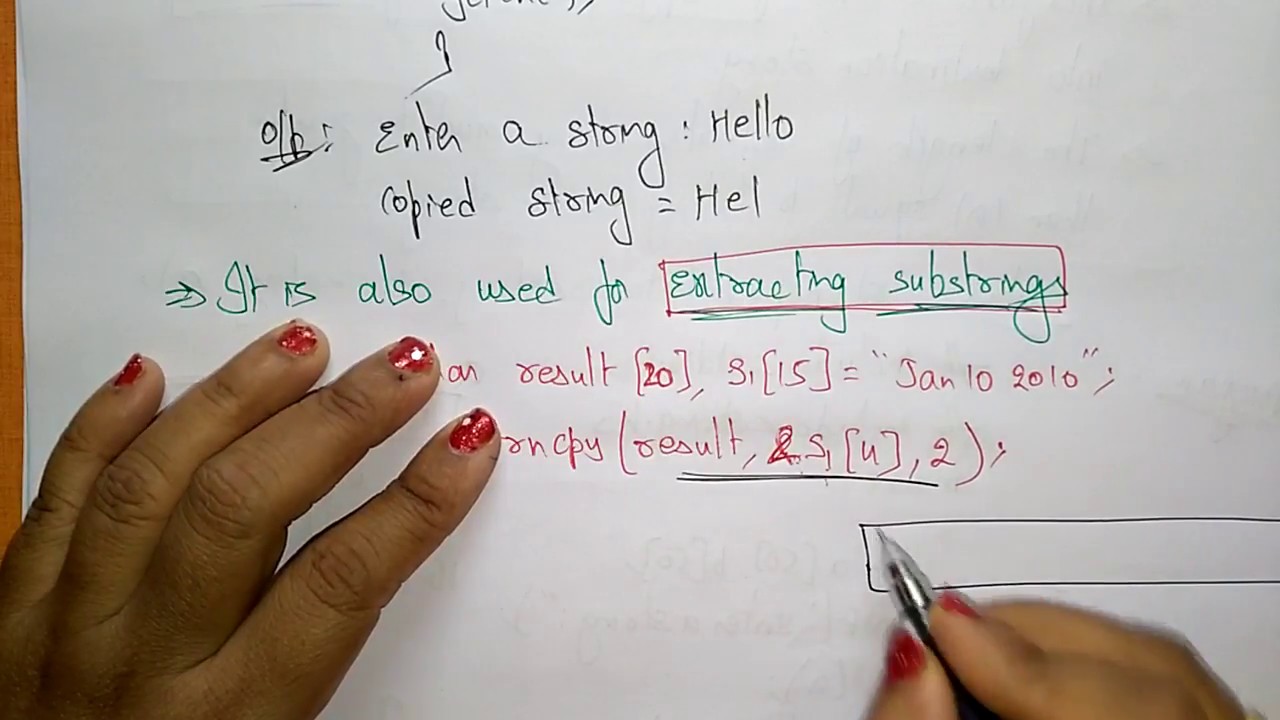 }
O/p: Enter a string : Hello
Copied string = Hel
⇒ It is also used for extracting substrings
result [20], S1[15] = "Jan 10 2010";
rncpy (result, &S1[4], 2);